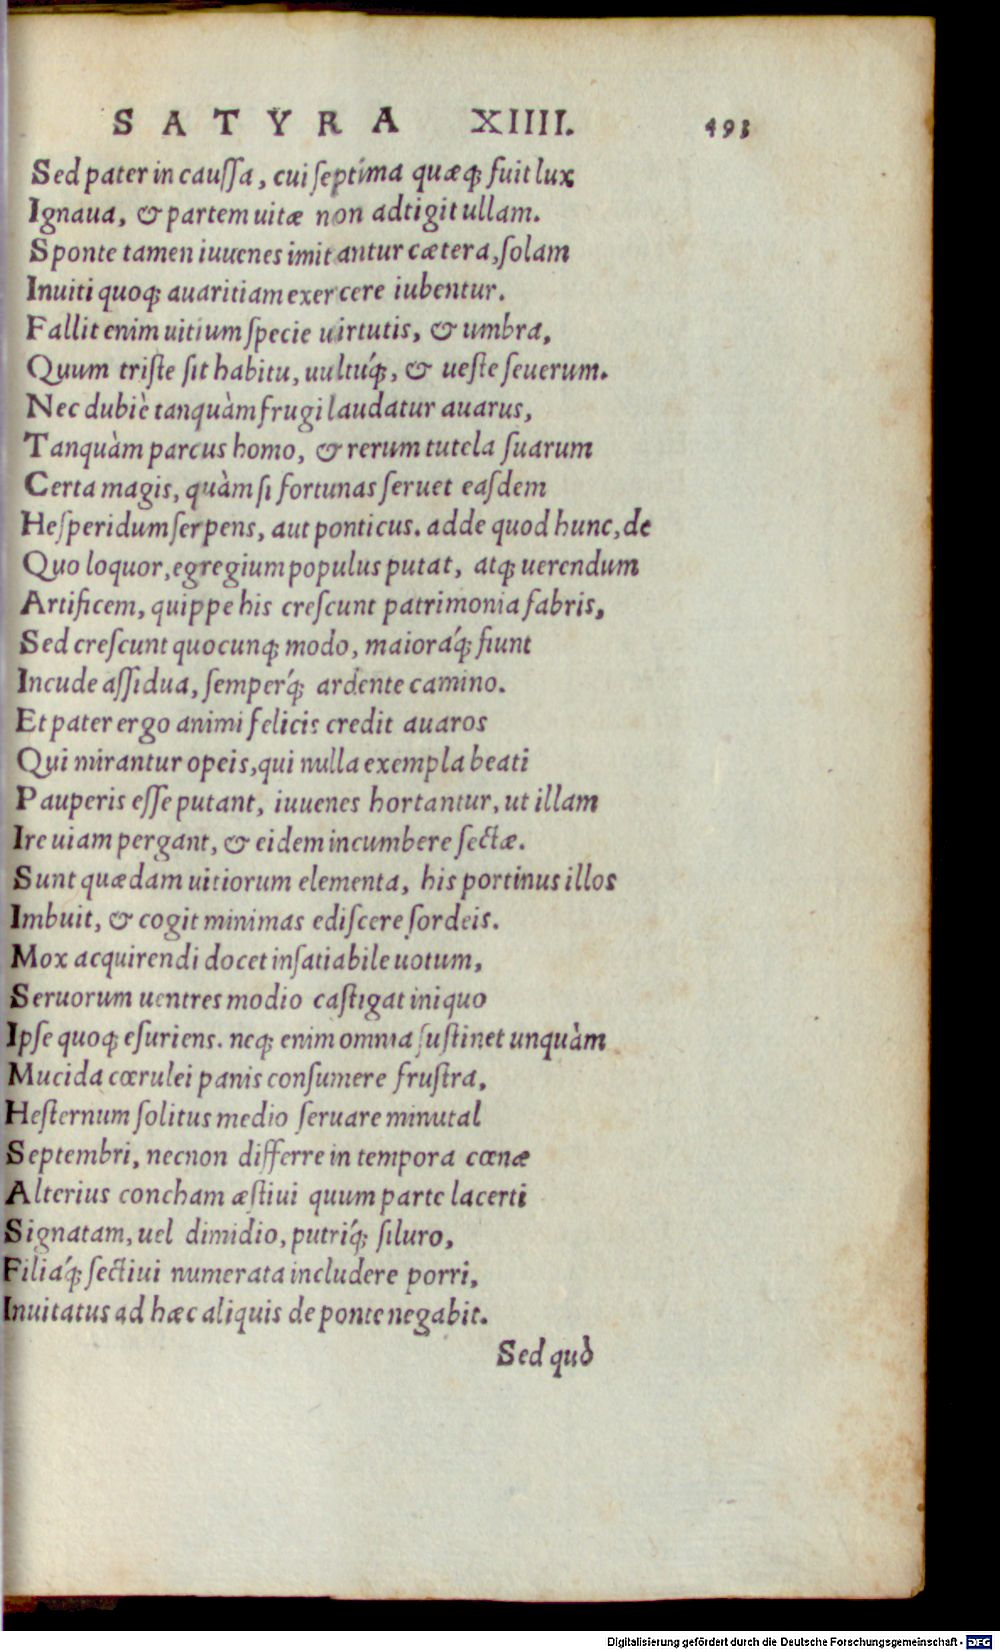 SATYRA XIIII. 493
Sed pater in cauſſa, cui ſeptima quæq; fuit lux
Ignaua, & partem uitæ non adtigit ullam.
Sponte tamen iuuenes imitantur cætera, ſolam
Inuiti quoq; auaritiam exercere iubentur.
Fallit enim uitium ſpecie uirtutis, & umbra,
Quum triſte ſit habitu, uultúq;, & ueſte ſeuerum.
Nec dubiè tanquàm frugi laudatur auarus,
Tanquàm parcus homo, & rerum tutela ſuarum
Certa magis, quàm ſi fortunas ſeruet eaſdem
Heſperidum ſerpens, aut ponticus. adde quod hunc, de
Quo loquor, egregium populus putat, atq; uerendum
Artificem, quippe his creſcunt patrimonia fabris,
Sed creſcunt quocunq; modo, maioráq; fiunt
Incude aſſidua, ſemperq́; ardente camino.
Et pater ergo animi felicis credit auaros
Qui mirantur opeis, qui nulla exempla beati
Pauperis eſſe putant, iuuenes hortantur, ut illam
Ire uiam pergant, & eidem incumbere ſectæ.
Sunt quædam uitiorum elementa, his portinus illos
Imbuit, & cogit minimas ediſcere ſordeis.
Mox acquirendi docet inſatiabile uotum,
Seruorum uentres modio caſtigat iniquo
Ipſe quoq; eſuriens. neq; enim omnia ſuſtinet unquàm
Mucida cœrulei panis conſumere fruſtra,
Heſternum ſolitus medio ſeruare minutal
Septembri, necnon differre in tempora cœnæ
Alterius concham æſtiui quum parte lacerti
Signatam, uel dimidio, putriq́; ſiluro,
Filiáq; ſectiui numerata includere porri,
Inuitatus ad hæc aliquis de ponte negabit.
Sed quò
Digitalisierung gefördert durch die Deutsche Forschungsgemeinschaft - DFG